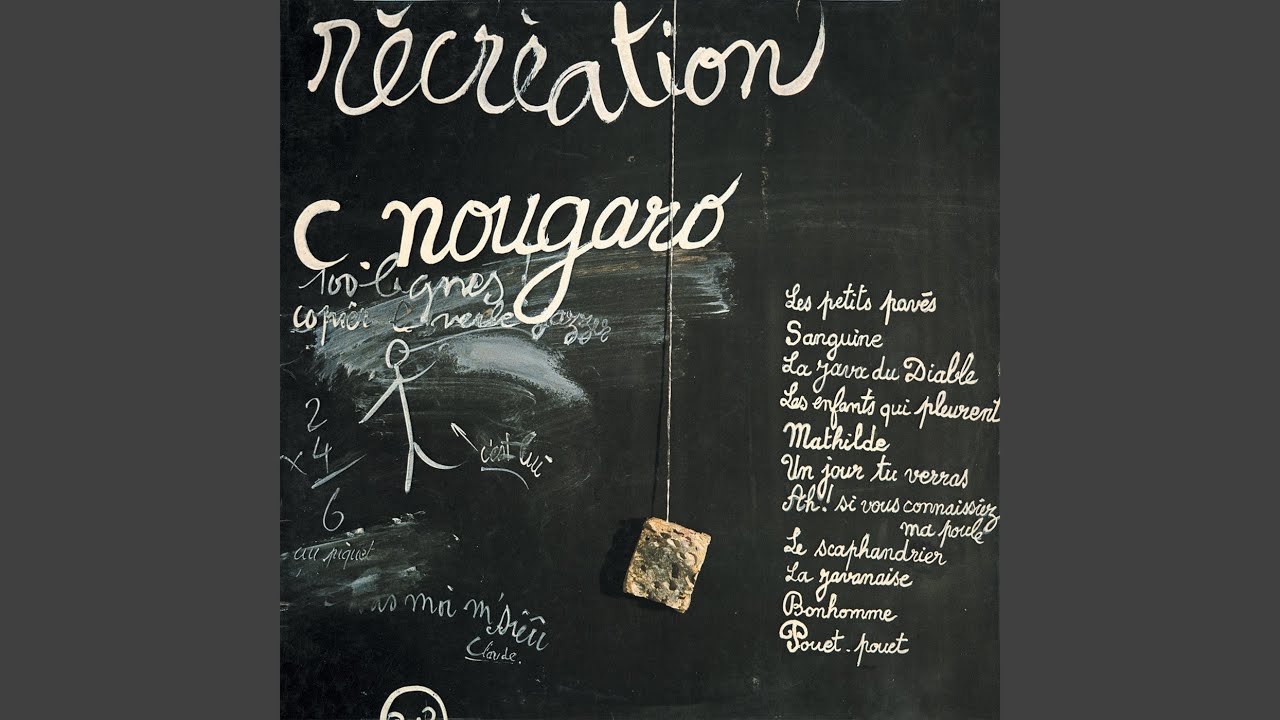 rĕcrèation
c. nougaro
100 lignes !
copier le verbe jazzer
c'est lui
2
x 4
6
au piquet
as moi m'siêu
Claude.
Les petits pavés
Sanguine
La java du Diable
Les enfants qui pleurent
Mathilde
Un jour tu verras
Ah! si vous connaissiez
ma poule
Le scaphandrier
La javanaise
Bonhomme
Pouet - pouet